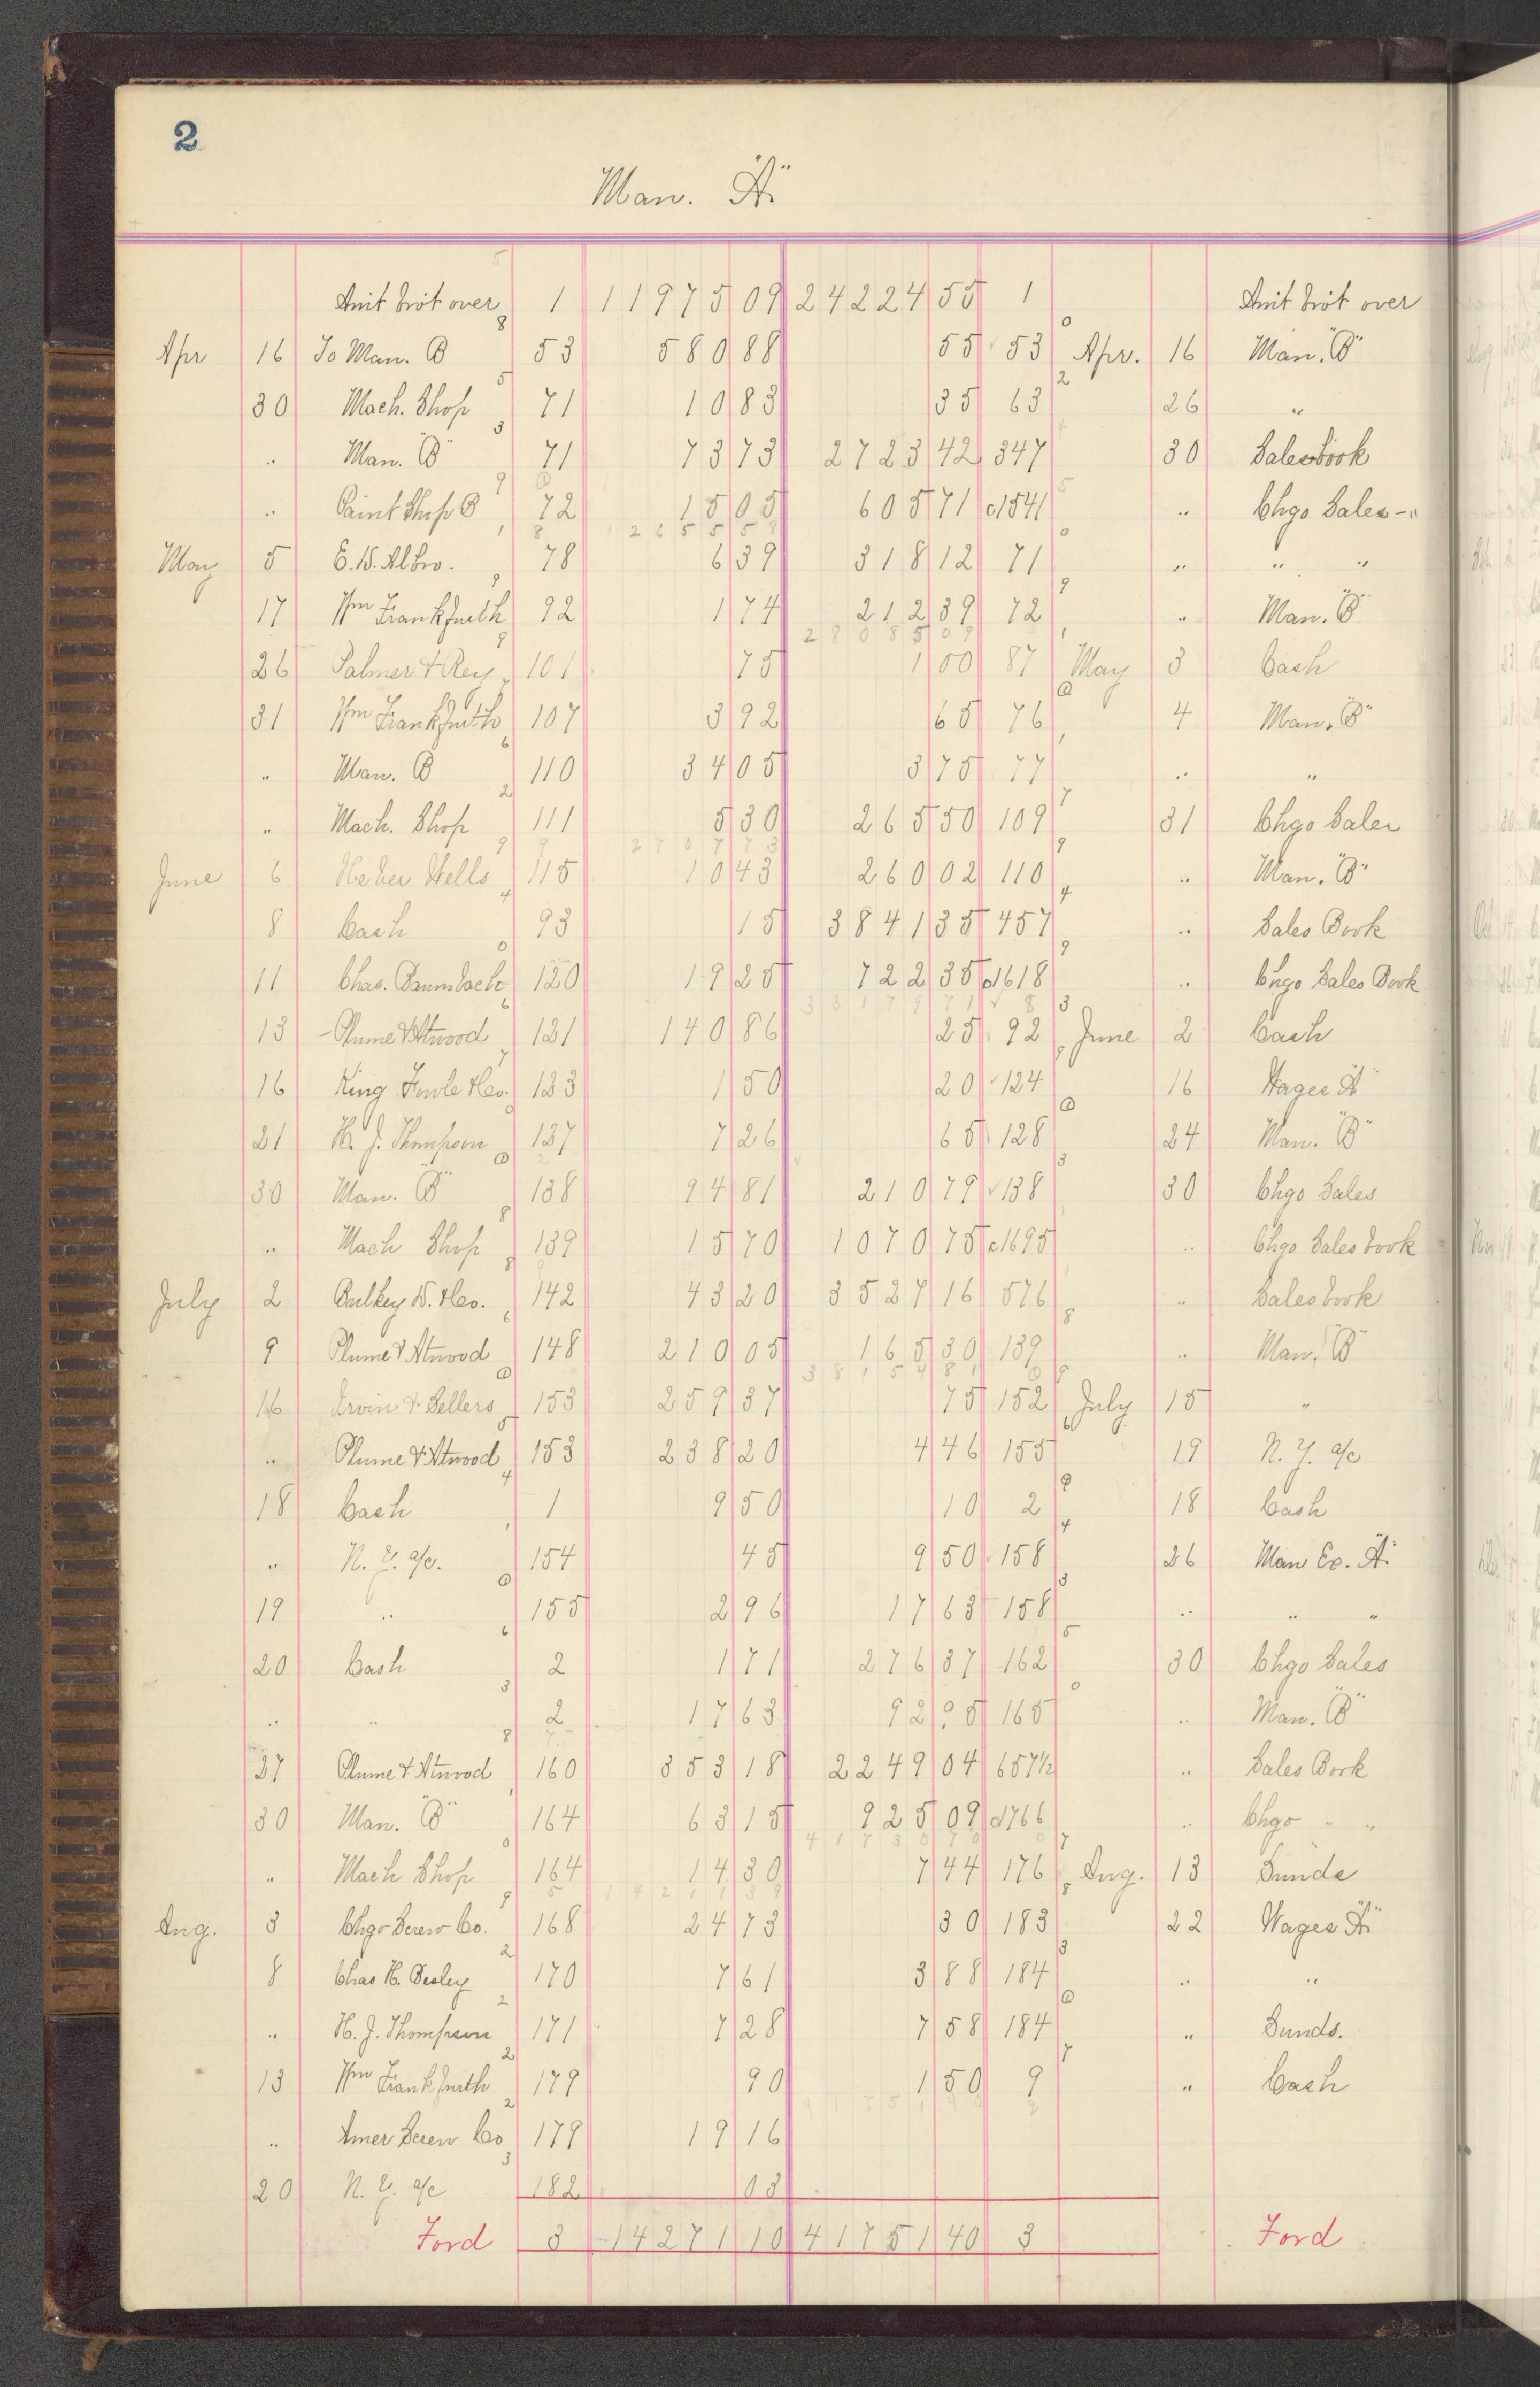 2
Man. "A"
Amt brot over 1 11975 09 24224 55 1 Amt brot over
Apr 16 To Man. B 53 580 88 55 53 Apr. 16 Man. "B"
30 Mach. Shop 71 10 83 35 63 26 "
" Man. "B" 71 73 73 2723 42 347 30 Salesbook
" Paint Shop B 72 15 05 605 71 c1541 " Chgo Sales - "
1265558
May 5 E. W. Albro. 78 6 39 318 12 71 " " "
17 Wm Frankfurth 92 1 74 212 39 72 " Man. "B"
2808509
26 Palmer & Rey 101 75 1 00 87 May 3 Cash
31 Wm Frankfurth 107 3 92 65 76 4 Man. "B"
" Man. B 110 34 05 3 75 77 " "
" Mach. Shop 111 5 30 265 50 109 31 Chgo Sales
June 6 Heber Wells 115 10 43 260 02 110 " Man. "B"
8 Cash 93 15 3841 35 457 " Sales Book
11 Chas. Baumbach 120 19 25 722 35 c1618 " Chgo Sales Book
13 Plume & Atwood 121 140 86 25 92 June 2 Cash
16 King Fowle & Co. 123 1 50 20 124 16 Wages "A"
21 H. J. Thompson 127 7 26 65 128 24 Man. "B"
30 Man. "B" 138 94 81 210 79 138 30 Chgo Sales
" Mach Shop 139 15 70 1070 75 c1695 " Chgo Sales book
July 2 Bulkey W. & Co. 142 43 20 3527 16 576 " Salesbook
9 Plume & Atwood 148 210 05 165 30 139 " Man. "B"
16 Irvin & Sellers 153 259 37 75 152 July 15 "
" Plume & Atwood 153 238 20 4 46 155 19 N. Y. a/c
18 Cash 1 9 50 10 2 18 Cash
" N. Y. a/c. 154 45 9 50 158 26 Man Ex. "A"
19 " 155 2 96 17 63 158 " " "
20 Cash 2 1 71 276 37 162 30 Chgo Sales
" " 2 17 63 92 95 165 " Man. "B"
27 Plume & Atwood 160 353 18 2249 04 657½ " Sales Book
30 Man. "B" 164 63 15 925 09 c1766 " Chgo " "
" Mach Shop 164 14 30 7 44 176 Aug. 13 Sunds
Aug. 3 Chgo Screw Co. 168 24 73 30 183 22 Wages "A"
8 Chas H. Besley 170 7 61 3 88 184 " "
" H. J. Thompson 171 7 28 7 58 184 " Sunds.
13 Wm Frankfurth 179 90 1 50 9 " Cash
" Amer Screw Co 179 19 16
20 N. Y. a/c 182 03
Ford 3 14271 10 41751 40 3 Ford